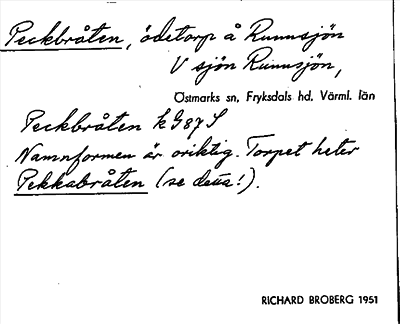 Peckbråten, ödetorp å Runnsjön
V sjön Runnsjön,
Östmarks sn, Fryksdals hd. Värml. län
Peckbråten k 987 S
Namnformen är oriktig. Torpet heter
Pekkabråten (se detta!).
RICHARD BROBERG 1951